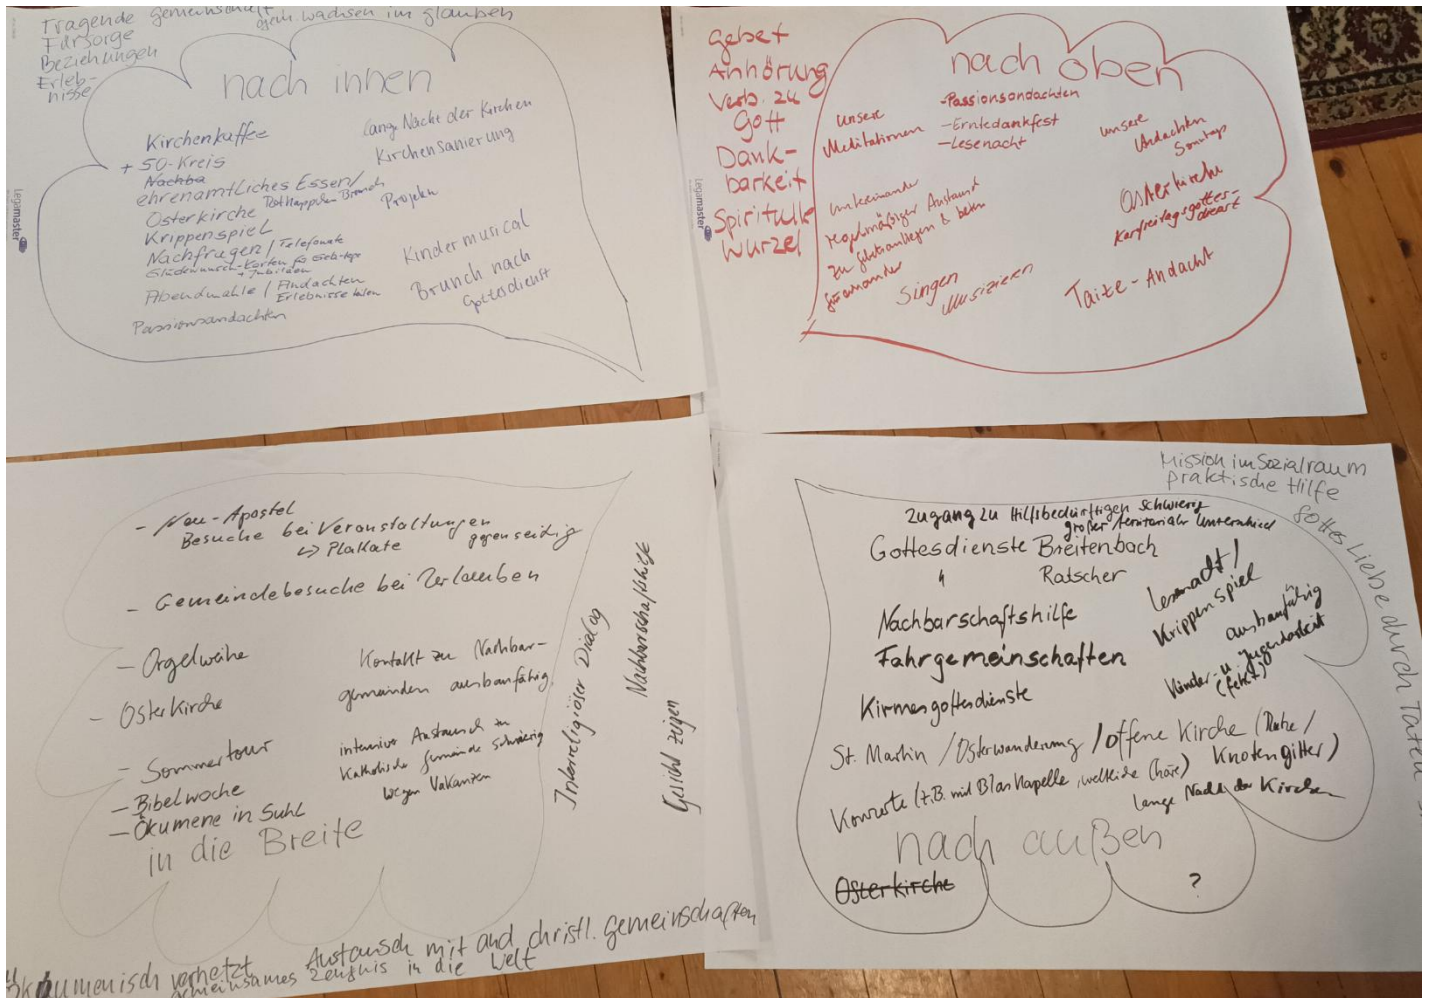 Tragende Gemeinschaft
gem. wachsen im Glauben
Fürsorge
Beziehungen
Erleb-
nisse
nach innen
Kirchenkaffee
+ 50-Kreis
Nachba
ehrenamtliches Essen/
Brunch
Osterkirche
Krippenspiel
Nachfragen / Telefonate
Glückwunsch-Karten
+ Jubiläen
Abendmahle / Andachten
Erlebnisse
Passionsandachten
lange Nacht der Kirchen
Kirchensanierung
Projekte
Kindermusical
Brunch nach
Gottesdienst
Legamaster
Gebet
Anhörung
Verb. zu
Gott
Dank-
barkeit
Spirituelle
Wurzel
nach oben
unsere
Meditationen
-Passionsandachten
-Erntedankfest
-Lesenacht
unsere
Andachten
Sonntags
Osterkirche
Karfreitagsgottes-
dienst
Taize-Andacht
regelmäßiger Austausch
zu Gebetsanliegen & beten
füreinander
Singen
Musizieren
Legamaster
- Neu-Apostel
Besuche bei Veranstaltungen
gegenseidig
↳ Plakate
- Gemeindebesuche bei
- Orgelweihe
- Osterkirche
- Sommertour
- Bibelwoche
- Ökumene in Suhl
Kontakt zu Nachbar-
gemeinden ausbaufähig
intensiver Austausch zu
Katholische Gemeinde schwierig
wegen Vakanzen
in die Breite
Interreligiöser Dialog
Nachbarschaftshilfe
Gesicht zeigen
Ökumenisch vernetzt
Austausch mit and christl. Gemeinschaften
gemeinsames Zeugnis in die Welt
Mission im Sozialraum
praktische Hilfe
Gottes Liebe durch Taten
Zugang zu Hilfsbedürftigen schwierig
großer territorialer Unterschied
Gottesdienste Breitenbach
" Ratscher
Nachbarschaftshilfe
Fahrgemeinschaften
Kirmesgottesdienste
Lesenacht/
Krippenspiel
ausbaufähig
Kinder- u Jugendarbeit
(fehlt)
St. Martin / Osterwanderung / offene Kirche (Ruhe /
Knotengitter)
Konzerte (z.B. mit Blaskapelle, weltliche Chöre)
lange Nacht der Kirchen
nach außen
Osterkirche
?